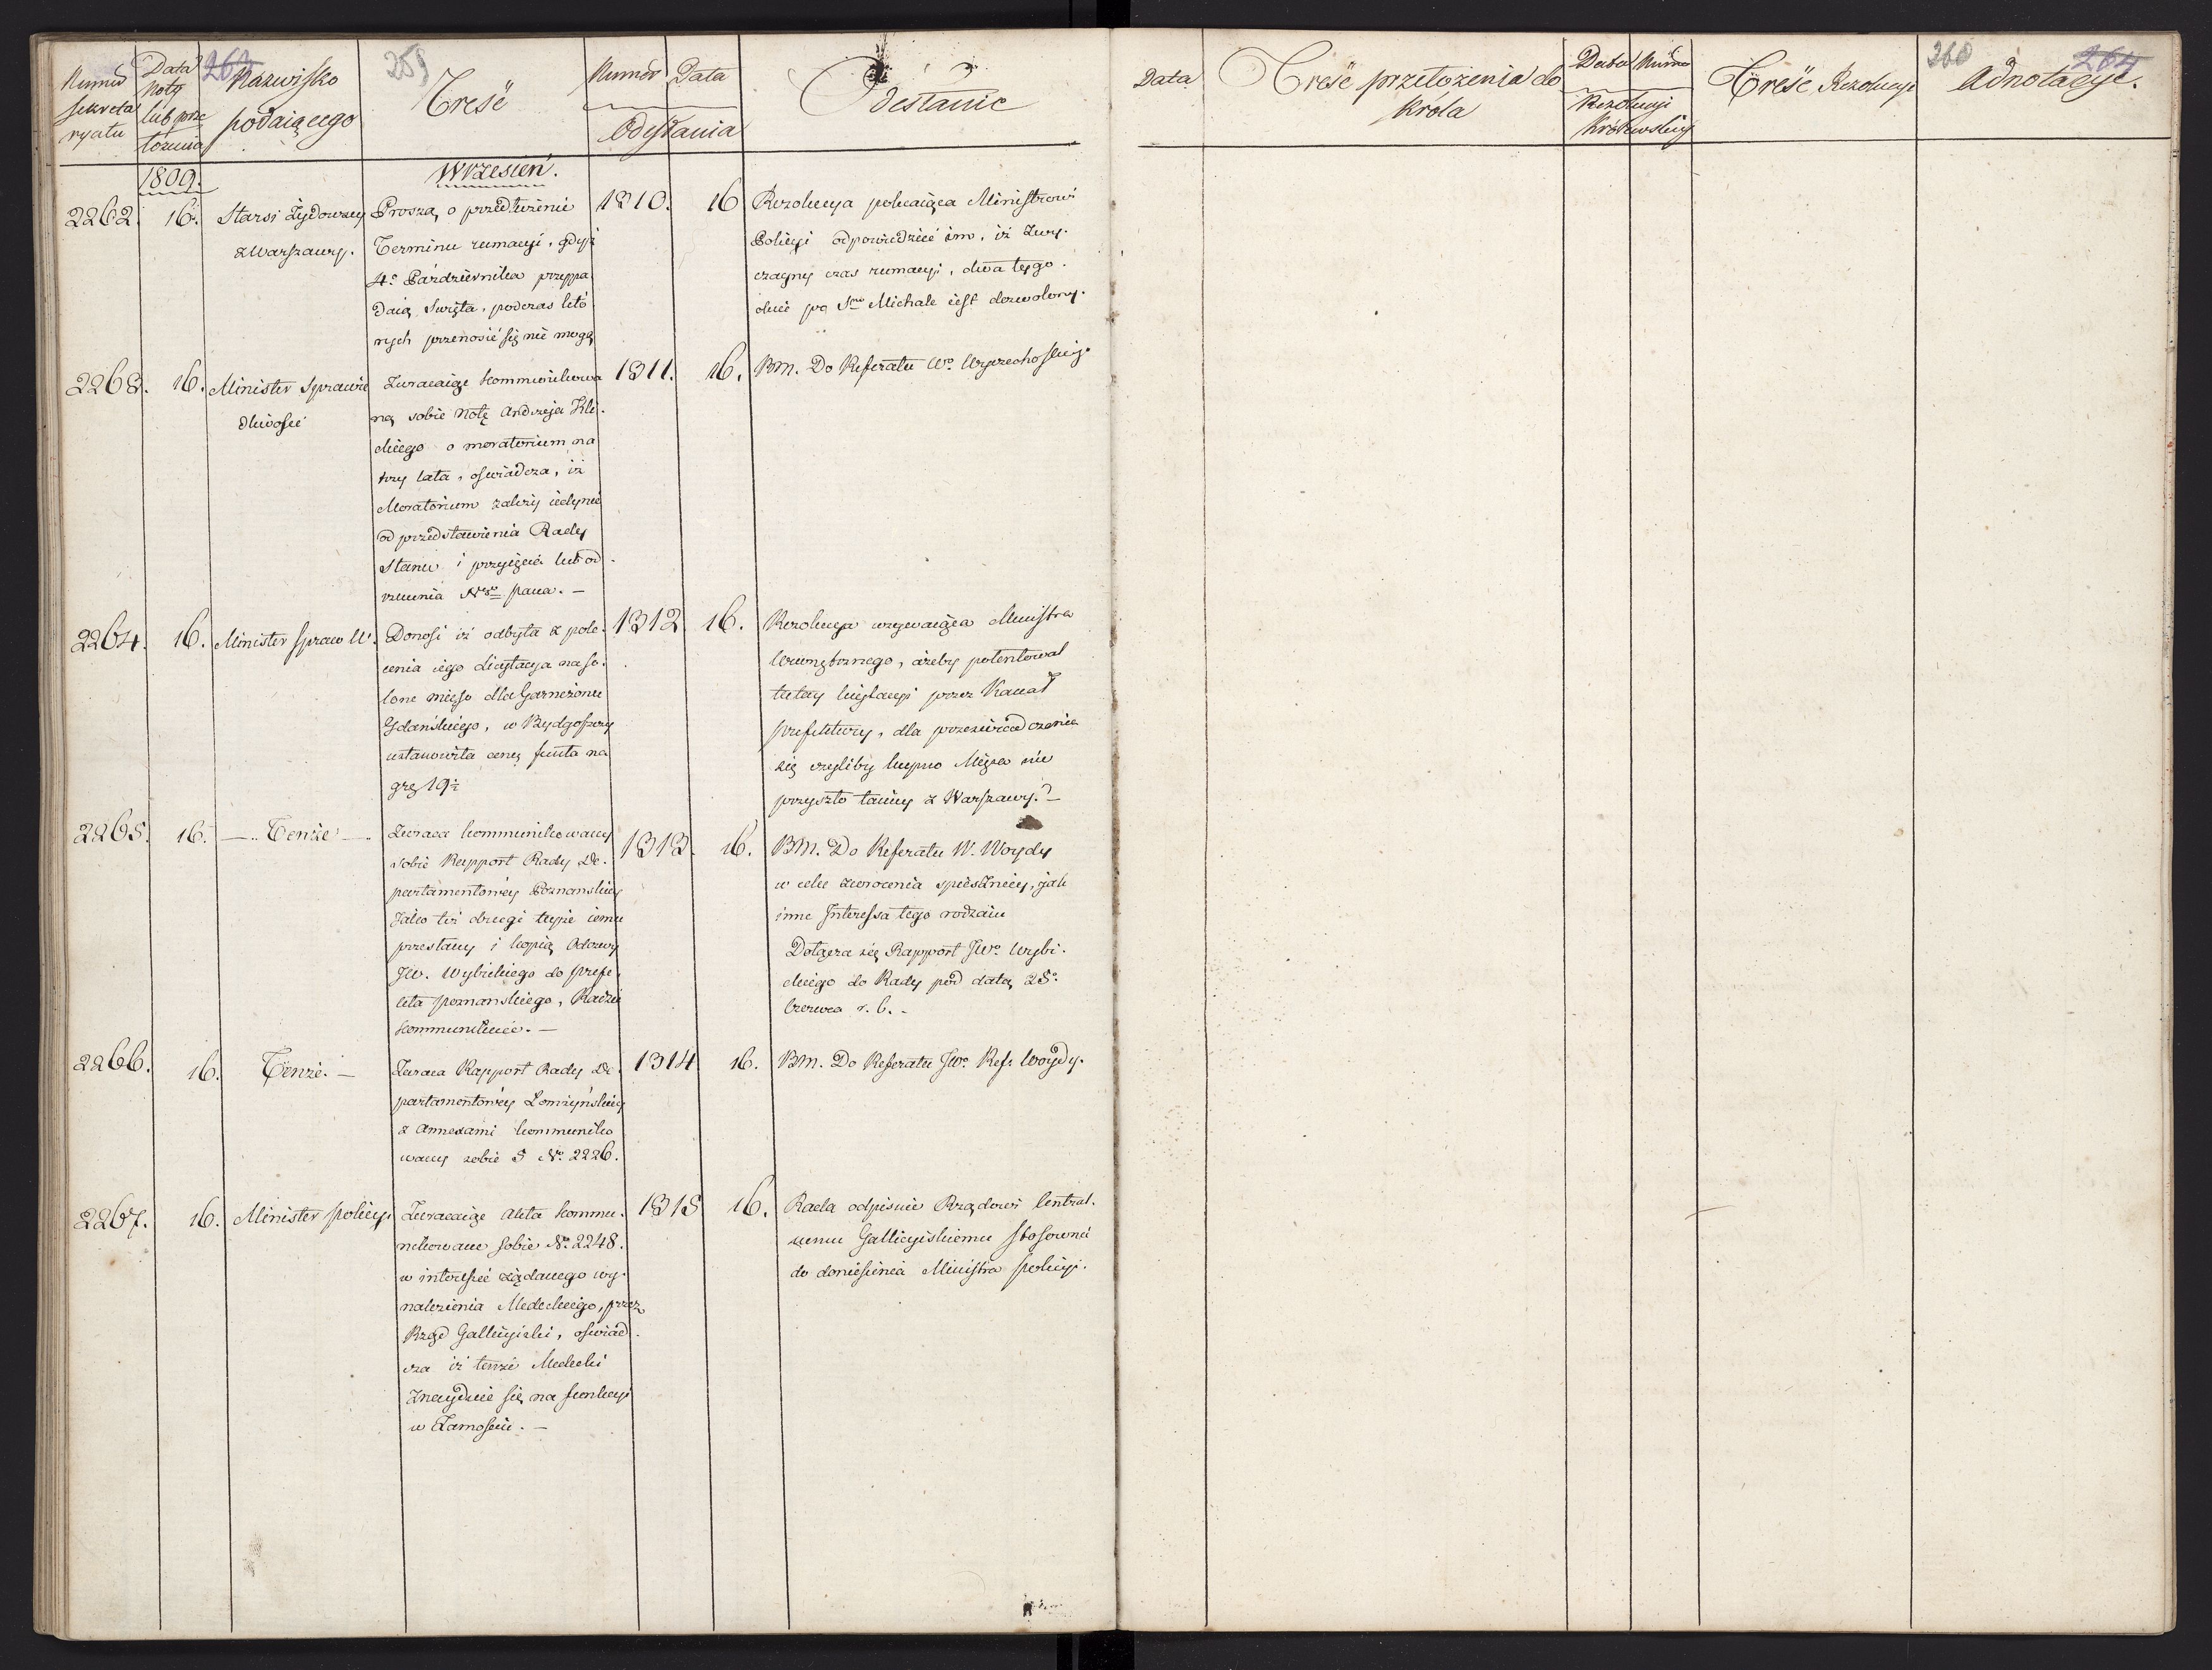 263
259
Numer Sekretaryatu
Data Noty lub przełożenia
Nazwisko podaiącego
Treść
Numer Data
Odesłania
Odesłanie
1809.
Wrzesień.
2262. 16. Starsi Żydowscy
z Warszawy.
Proszą o przedłużenie
Terminu rumacyi, gdyż
4o Października przypa
daią Swięta, podczas któ
rych przenosić się nie mogą
1310. 16
Rezolucya polecaiąca Ministrowi
Policyi odpowiedzieć im, iż zwy-
czayny czas rumacyi, dwa tygo-
dnie po Sm Michale iest dozwolony.
2263. 16. Minister Sprawie
dliwości
Zwracaiąc kommunikowa
ną sobie Notę Andrzeja Kli-
ckiego o moratorium na
trzy lata, oświadcza, iż
Moratorium zależy iedynie
od przedstawienia Rady
Stanu i przyięcia lub od-
rzucenia Nayso Pana. —
1311. 16.
BM. Do Referatu Wo Wyczechoskiego
2264. 16. Minister Spraw W.
Donosi iż odbyta z pole-
cenia iego Licytacya na so-
lone mięso dla Garnizonu
Gdańskiego, w Bydgoszczy
ustanowiła cenę funta na
grs 19½
1312 16.
Rezolucya wzywaiąca Ministra
Wewnętrznego, ażeby potentował
tutay licytacyi przez Kanał
Prefektury, dla przeświadczenia
się czyliby kupno Mięsa nie
przyszło taniey z Warszawy? —
2265. 16. — Tenże —
Zwraca kommunikowany
sobie Rapport Rady De-
partamentowey Poznanskiey
Jako też drugi tupże iemu
przesłany i kopią Odezwy
JW. Wybickiego do Prefe-
kta Poznanskiego, Radzie
kommunikuie. —
1313. 16.
BM. Do Referatu W. Woydy
w celu zwrocenia spieszniey, jak
inne Interessa tego rodzaiu
Dołącza się Rapport JWo Wybi-
ckiego do Rady pod datą 25o
Czerwca r. b. -
2266. 16. Tenże. —
Zwraca Rapport Rady De-
partamentowey Łomżyńskiey
z Annexami kommuniko
wany sobie S No 2226.
1314 16.
BM. Do Referatu JWo Ref. Woydy.
2267. 16. Minister Policyi
Zwracaiąc Akta kommu-
nikowane sobie No 2248.
w interesie żądanego wy-
nalezienia Medeckiego, przez
Rząd Gallicyiski, oświad-
cza iż tenże Medecki
Znayduie się na funkcyi
w Zamościu. —
1315 16.
Rada odpisuie Rządowi Central-
nemu Gallicyiskiemu stosownie
do doniesienia Ministra Policyi.
260
264
Data
Treść przełożenia do
Króla
Data Numer
Rezolucyi
Królewskiey
Treść Rezolucyi
Adnotacye.